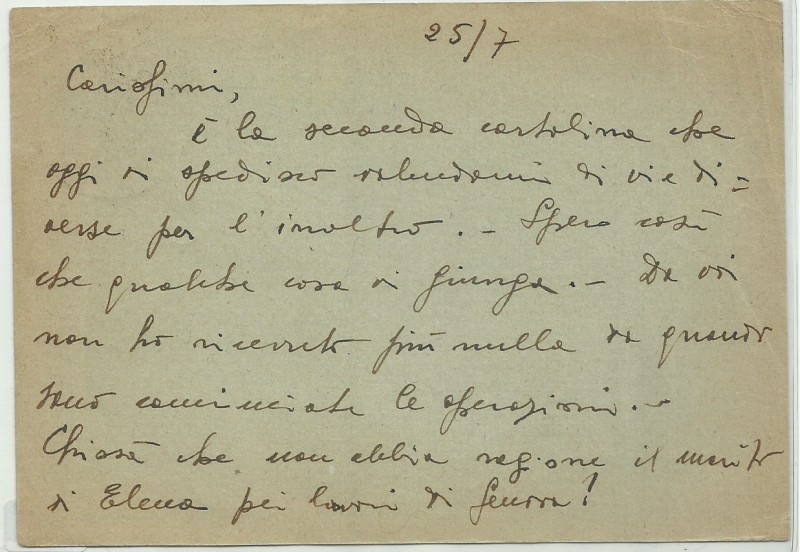 25/7
Carissimi,
È la seconda cartolina che
oggi vi spedisco valendomi di vie di=
verse per l'inoltro. - Spero così
che qualche cosa vi giunga. - Da voi
non ho ricevuto più nulla da quando
sono cominciate le operazioni. -
Chissà che non abbia ragione il marito
di Elena pei lavori di Genova!